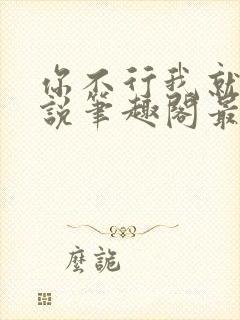 你不行我就
說筆趣閣最
麼詭